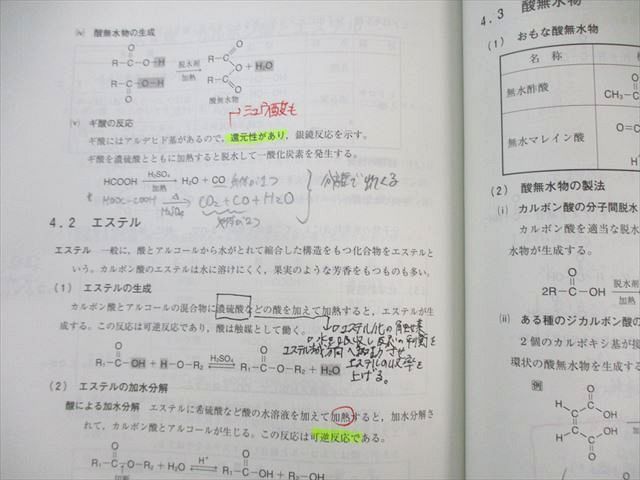 (iv) 酸無水物の生成
O
R-C-O-H
R-C-O-H
O
脱水剤
加熱
O
R-C
O + H₂O
R-C
O
酸無水物
シュウ酸も
(v) ギ酸の反応
ギ酸にはアルデヒド基があるので,還元性があり,銀鏡反応を示す。
ギ酸を濃硫酸とともに加熱すると脱水して一酸化炭素を発生する。
HCOOH H₂SO₄ 加熱 H₂O + CO
* HOOC-COOH △ H₂SO₄ CO₂+CO+H₂O
4.2 エステル
エステル 一般に,酸とアルコールから水がとれて縮合した構造をもつ化合物をエステルと
いう。カルボン酸のエステルは水に溶けにくく,果実のような芳香をもつものも多い。
(1) エステルの生成
カルボン酸とアルコールの混合物に濃硫酸などの酸を加えて加熱すると,エステルが生
成する。この反応は可逆反応であり,酸は触媒として働く。
エステル化の触媒
エステルの収率を
上げる。
O
R₁-C-OH + H-O-R₂ H₂SO₄ R₁-C-O-R₂ + H₂O
O
(2) エステルの加水分解
酸による加水分解 エステルに希硫酸など酸の水溶液を加えて加熱すると,加水分解さ
れて,カルボン酸とアルコールが生じる。この反応は可逆反応である。
O
R₁-C-O-R₂ + H₂O H⁺ R₁-C-OH + R₂-OH
O
4.3 酸無水物
(1) おもな酸無水物
名 称
無水酢酸
CH₃-C
無水マレイン酸
(2) 酸無水物の製法
(i) カルボン酸の分子間脱水
カルボン酸を適当な脱水
水物が生成する。
O
2R-C-OH
脱水剤
加熱
(ii) ある種のジカルボン酸の
2個のカルボキシ基が接
環状の酸無水物を生成する
例
O
H C C OH
C
C
H C OH
O
加